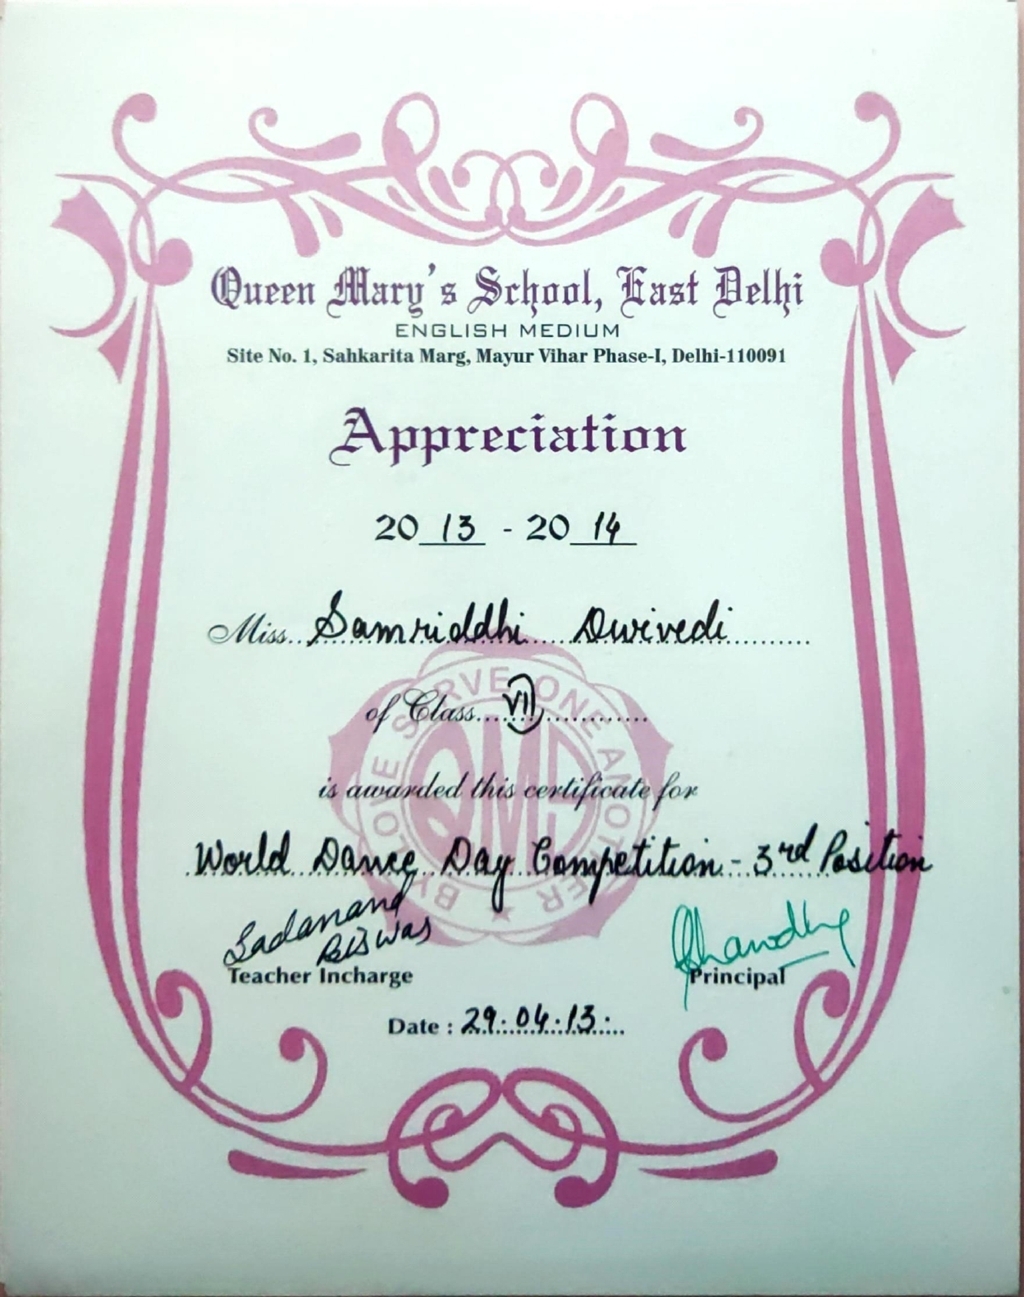 Queen Mary's School, East Delhi
ENGLISH MEDIUM
Site No. 1, Sahkarita Marg, Mayur Vihar Phase-I, Delhi-110091
Appreciation
20 13 - 20 14
Miss Samriddhi Dwivedi
of Class VII
BY LOVE SERVE ONE ANOTHER
QMS
is awarded this certificate for
World Dance Day Competition - 3rd Position
Sadanand
Biswas
Teacher Incharge
Principal
Date : 29.04.13.